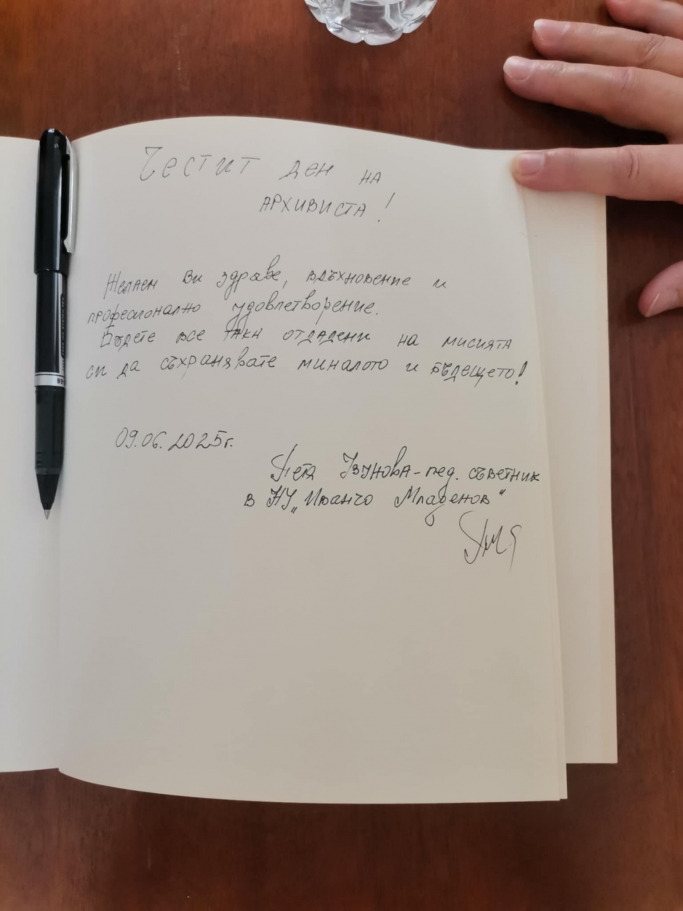 Честит ден на
архивиста!
Желаем Ви здраве, вдъхновение и
професионално удовлетворение.
Бъдете все така отдадени на мисията
си да съхранявате миналото и бъдещето!
09.06.2025г.
Петя - пед. съветник
в НУ „Иванчо Младенов"